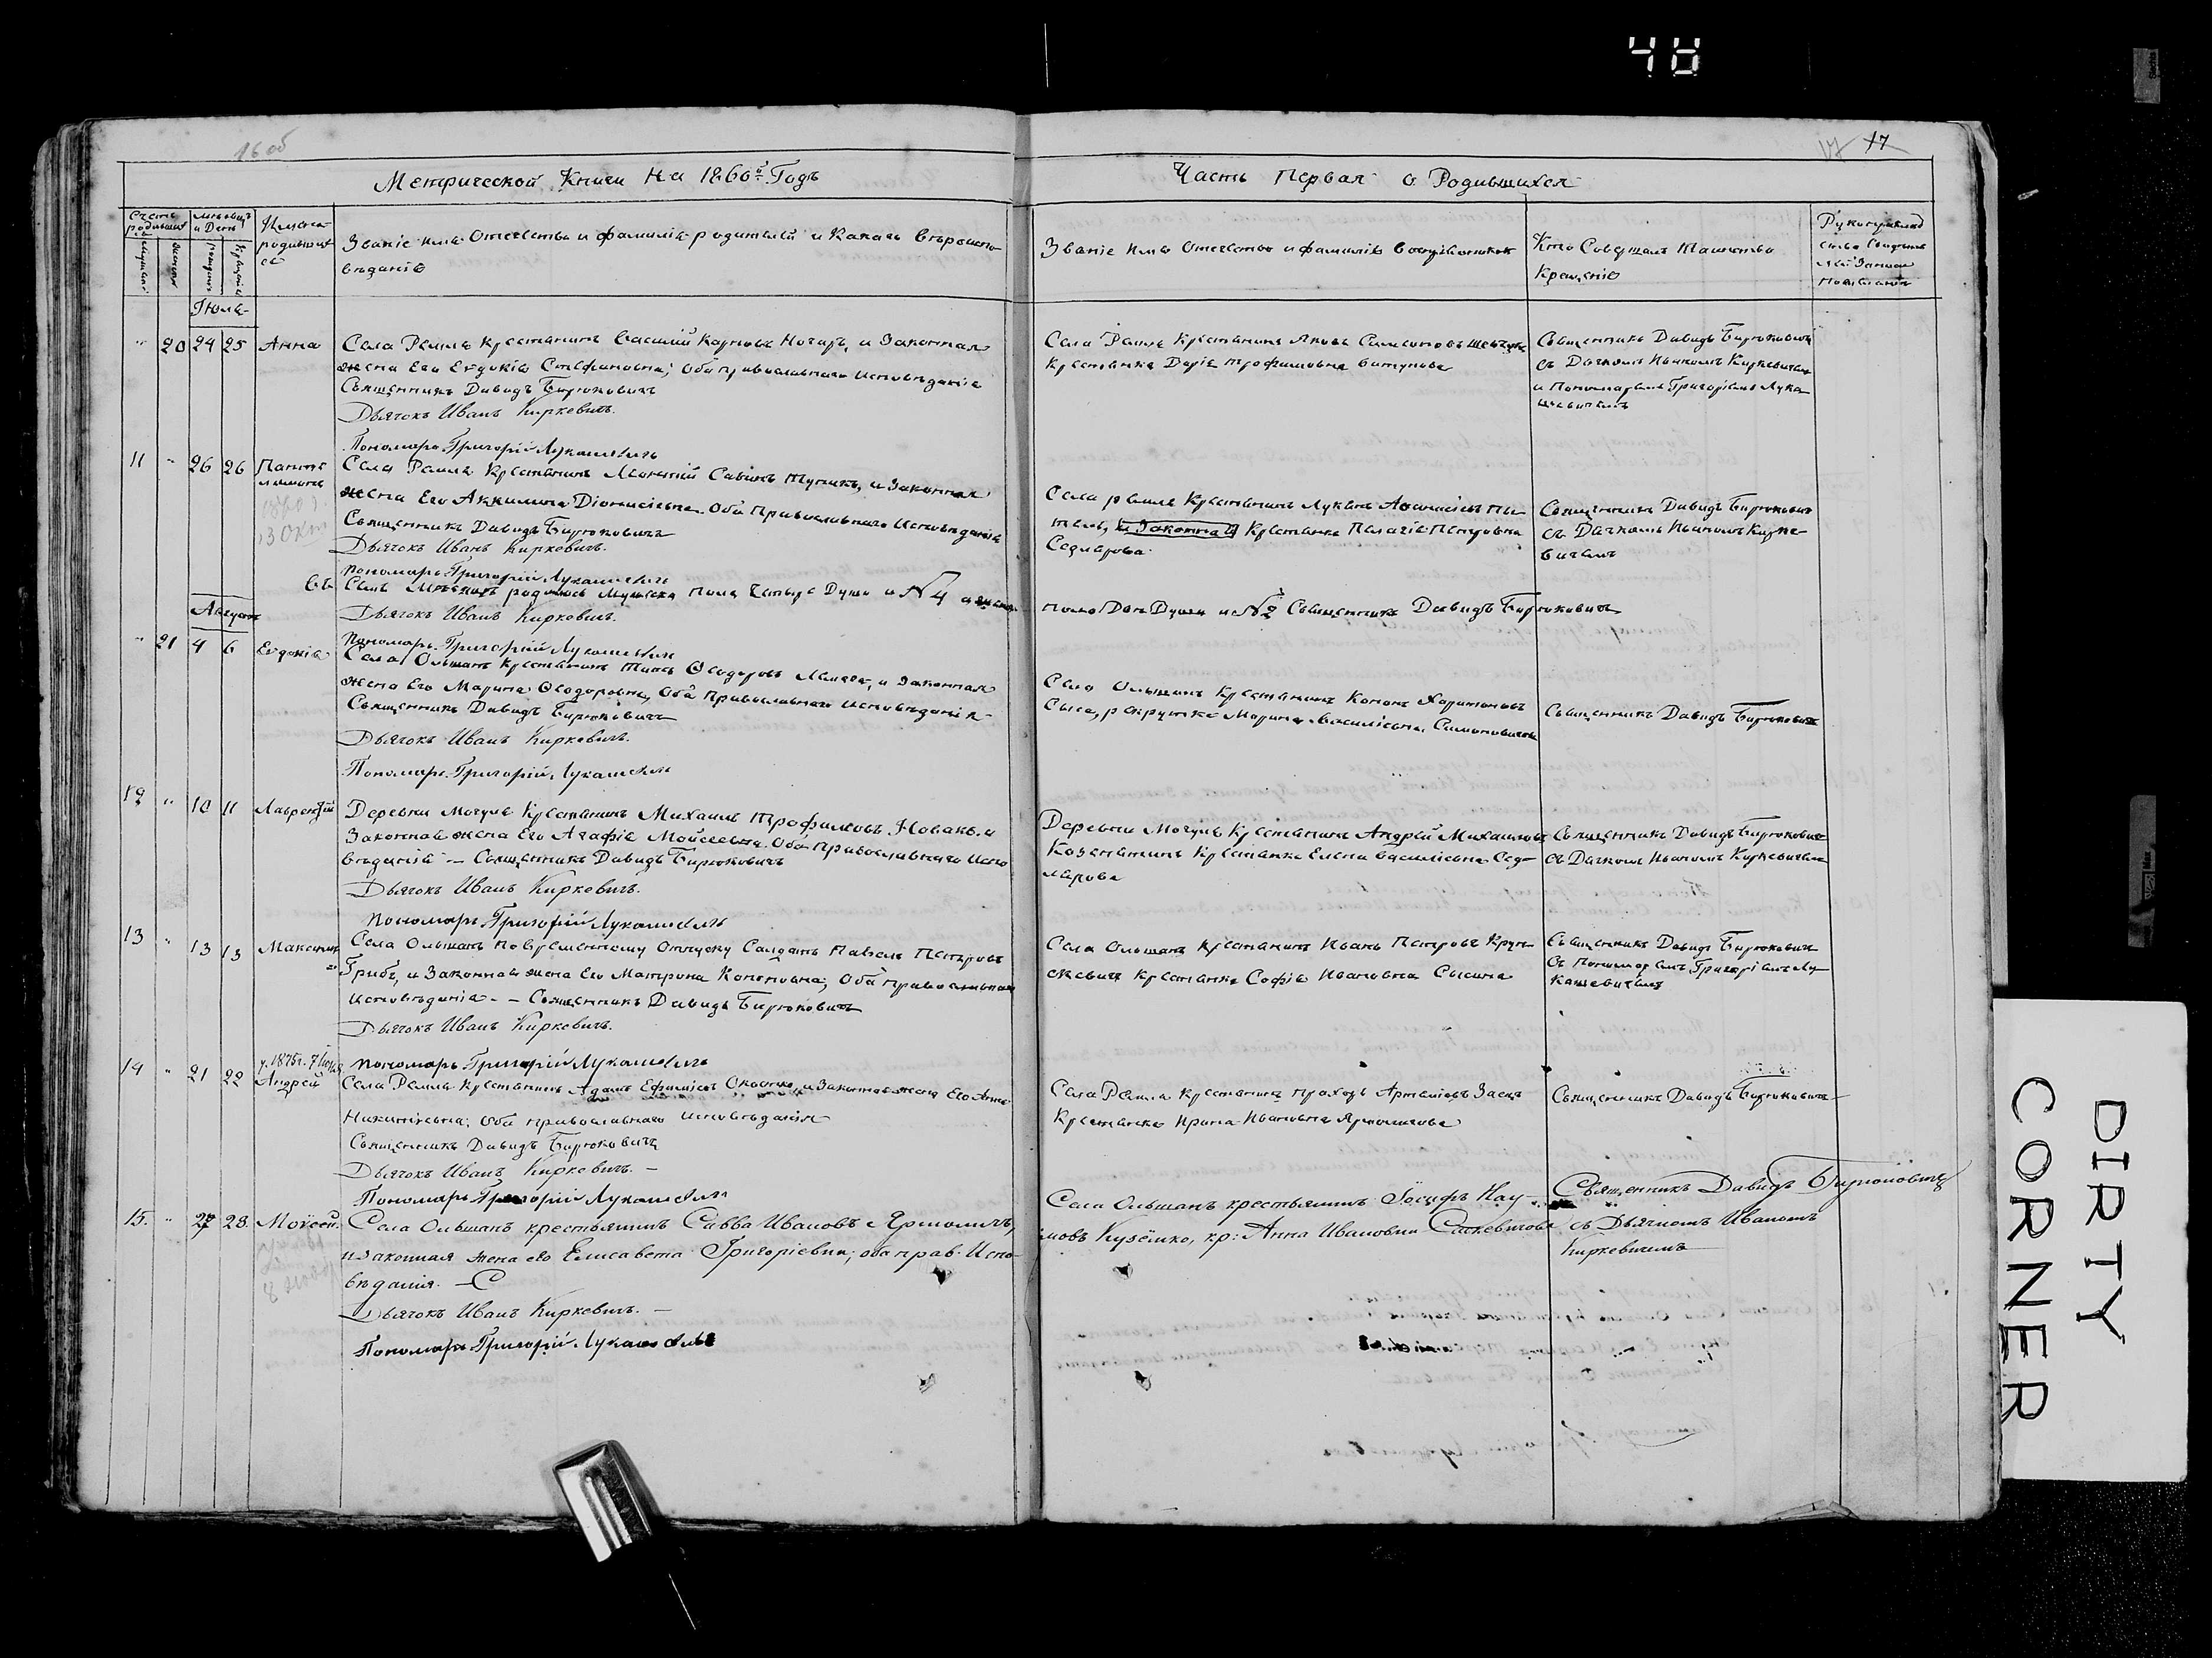 48
16 об
17 17
Метрической Книги На 1860й Годъ
Часть Первая о Родившихся
Счетъ родившихся
Мѣсяцъ и День
Имена родившихся
Званіе имя Отечество и фамилія родителей и Какаго вѣроиспо-
вѣданія
Званіе Имя Отечество и фамилія воспріемниковъ
Кто Совершалъ Таинство
Крещенія
Іюля
" 20 24 25 Анна
Села Ремля Крестьянинъ Василій Карповъ Ногаръ, и Законная
жена Его Евдокія Стефановна; Оба православнаго исповѣданія
Священникъ Давидъ Бирюковичъ
Дьячокъ Иванъ Киркевичъ.
Пономарь Григорій Лукашевичъ
Села Ремля Крестьянинъ Яковъ
Крестьянка Дарія Трофимовна
Священникъ Давидъ Бирюковичъ
съ Дьячкомъ Иваномъ Киркевичемъ
и Пономаремъ Григоріемъ Лука-
шевичемъ
11 " 26 26
Села Ремля Крестьянинъ Леонтій Савинъ Тупикъ, и Законная
жена Его Акилина Діонисіевна Оба Православнаго Исповѣданія
Священникъ Давидъ Бирюковичъ
Дьячокъ Иванъ Киркевичъ.
Пономарь Григорій Лукашевичъ
Села Ремля Крестьянинъ Лукьянъ
и Законная Крестьянка Пелагія Петровна
Седлярова
Священникъ Давидъ Бирюковичъ
съ Дьячкомъ Иваномъ Кирке-
вичемъ
Въ Семъ Мѣсяцѣ родилось Мужеска Пола Четыре Души и №4 а женска
пола Двѣ Души и №2 Священникъ Давидъ Бирюковичъ
Дьячокъ Иванъ Киркевичъ.
Пономарь Григорій Лукашевичъ
Августъ
" 21 4 6 Евдокія
Села Ольшанъ Крестьянинъ Ѳеодоровъ и Законная
жена Его Марина Ѳеодоровна, Оба Православнаго исповѣданія
Священникъ Давидъ Бирюковичъ
Дьячокъ Иванъ Киркевичъ.
Пономарь Григорій Лукашевичъ
Села Ольшанъ Крестьянинъ Кононъ Харитоновъ
Сыса, рекрутка Марина Василіевна Симоновичева
Священникъ Давидъ Бирюковичъ
12 " 10 11 Лаврентій
Деревни Могуль Крестьянинъ Михаилъ Трофимовъ Новакъ, и
Законная жена Его Агафія Мойсеевна Оба Православнаго Испо-
вѣданія — Священникъ Давидъ Бирюковичъ
Дьячокъ Иванъ Киркевичъ.
Пономарь Григорій Лукашевичъ
Деревни Могуль Крестьянинъ Андрей Михаиловъ
Крестьянка Елена Василіевна Сед-
лярова
Священникъ Давидъ Бирюковичъ
съ Дьячкомъ Иваномъ Киркевичемъ
13 " 13 13 Максимъ
Села Ольшанъ По временному Отпуску Салдатъ Павелъ Петровъ
Грибъ, и Законная жена Его Матрона Кононовна; Оба православнаго
исповѣданія — Священникъ Давидъ Бирюковичъ
Дьячокъ Иванъ Киркевичъ.
Пономарь Григорій Лукашевичъ
Села Ольшанъ Крестьянинъ Иванъ Петровъ Круп-
скевичъ Крестьянка Софія Ивановна Сысина
Священникъ Давидъ Бирюковичъ
съ Пономаремъ Григоріемъ Лу-
кашевичемъ
14 " 21 22
у. 1875г. 7 Іюля
Андрей
Села Ремля Крестьянинъ Адамъ Ефимовъ и Законная жена Его Анна
Никитична; Оба православнаго исповѣданія
Священникъ Давидъ Бирюковичъ
Дьячокъ Иванъ Киркевичъ. —
Пономарь Григорій Лукашевичъ
Села Ремля Крестьянинъ Прохоръ Артемовъ Заецъ
Крестьянка Ирина Ивановна
Священникъ Давидъ Бирюковичъ
15. " 27 28. Моѵсей.
Села Ольшанъ крестьянинъ Савва Ивановъ Ярмоличъ,
и законная жена его Елисавета Григоріевна; оба прав. Испо-
вѣданія. — С
Дьячокъ Иванъ Киркевичъ. —
Пономарь Григорій Лукашевичъ
Села Ольшанъ крестьянинъ Іосифъ Нау-
мовъ Куземко, кр: Анна Ивановна Саскевичова
Священникъ Давидъ Бирюковичъ
съ Дьячкомъ Иваномъ
Киркевичемъ
DIRTY
CORNER